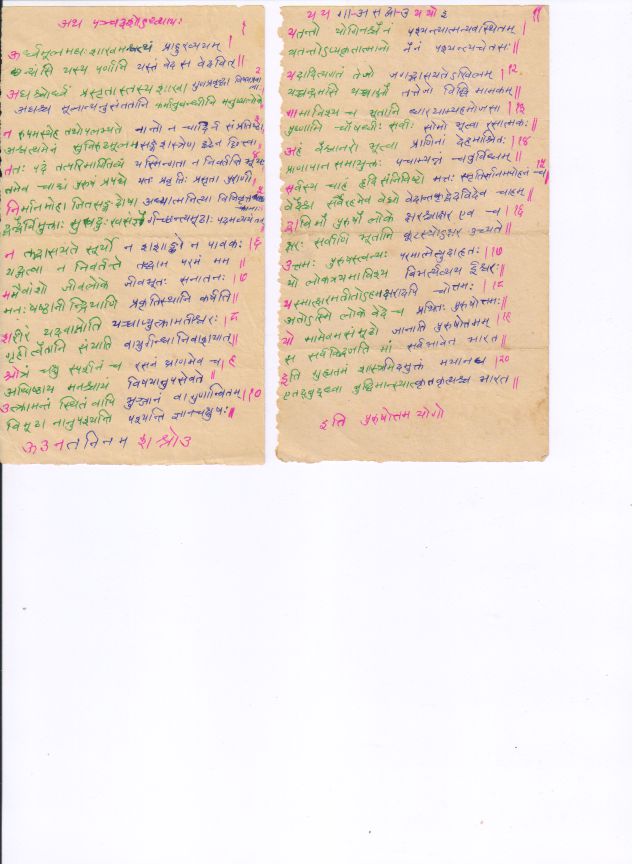 अथ पञ्चदशोऽध्यायः
ऊर्ध्वमूलमधः शाखमश्वत्थं प्राहुरव्ययम् ।
छन्दांसि यस्य पर्णानि यस्तं वेद स वेदवित् ॥
अधश्चोर्ध्वं प्रसृतास्तस्य शाखा गुणप्रवृद्धा विषयप्रवालाः २
अधश्च मूलान्यनुसंततानि कर्मानुबन्धीनि मनुष्यलोके
न रूपमस्येह तथोपलभ्यते नान्तो न चादिर्न च संप्रतिष्ठा ३
अश्वत्थमेनं सुविरूढमूलमसङ्गशस्त्रेण दृढेन छित्त्वा
ततः पदं तत्परिमार्गितव्यं यस्मिन्गता न निवर्तन्ति भूयः ४
तमेव चाद्यं पुरुषं प्रपद्ये यतः प्रवृत्तिः प्रसृता पुराणी
निर्मानमोहा जितसङ्गदोषा अध्यात्मनित्या विनिवृत्तकामाः ५
द्वन्द्वैर्विमुक्ताः सुखदुःखसंज्ञैर्गच्छन्त्यमूढाः पदमव्ययं तत्
न तद्भासयते सूर्यो न शशाङ्को न पावकः । ६
यद्गत्वा न निवर्तन्ते तद्धाम परमं मम ॥
ममैवांशो जीवलोके जीवभूतः सनातनः । ७
मनः षष्ठानीन्द्रियाणि प्रकृतिस्थानि कर्षति ॥
शरीरं यदवाप्नोति यच्चाप्युत्क्रामतीश्वरः । ८
गृहीत्वैतानि संयाति वायुर्गन्धानिवाशयात् ॥
श्रोत्रं चक्षुः स्पर्शनं च रसनं घ्राणमेव च । ९
अधिष्ठाय मनश्चायं विषयानुपसेवते ॥
उत्क्रामन्तं स्थितं वापि भुञ्जानं वा गुणान्वितम् । १०
विमूढा नानुपश्यन्ति पश्यन्ति ज्ञानचक्षुषः ॥
ऊ अ न त त नि न म श श्रो उ
य य गा-अ स द्वा-उ य यो इ
यतन्तो योगिनश्चैनं पश्यन्त्यात्मन्यवस्थितम् । ११
यतन्तोऽप्यकृतात्मानो नैनं पश्यन्त्यचेतसः ॥
यदादित्यगतं तेजो जगद्भासयतेऽखिलम् । १२
यच्चन्द्रमसि यच्चाग्नौ तत्तेजो विद्धि मामकम् ॥
गामाविश्य च भूतानि धारयाम्यहमोजसा । १३
पुष्णामि चौषधीः सर्वाः सोमो भूत्वा रसात्मकः ॥
अहं वैश्वानरो भूत्वा प्राणिनां देहमाश्रितः । १४
प्राणापान समायुक्तः पचाम्यन्नं चतुर्विधम् ॥
सर्वस्य चाहं हृदि संनिविष्टो मत्तः स्मृतिर्ज्ञानमपोहनं च १५
वेदैश्च सर्वैरहमेव वेद्यो वेदान्तकृद्वेदविदेव चाहम् ॥
द्वाविमौ पुरुषौ लोके क्षरश्चाक्षर एव च । १६
क्षरः सर्वाणि भूतानि कूटस्थोऽक्षर उच्यते ॥
उत्तमः पुरुषस्त्वन्यः परमात्मेत्युदाहृतः । १७
यो लोकत्रयमाविश्य बिभर्त्यव्यय ईश्वरः ॥
यस्मात्क्षरमतीतोऽहमक्षरादपि चोत्तमः । १८
अतोऽस्मि लोके वेदे च प्रथितः पुरुषोत्तमः ॥
यो मामेवमसंमूढो जानाति पुरुषोत्तमम् । १९
स सर्वविद्भजति मां सर्वभावेन भारत ॥
इति गुह्यतमं शास्त्रमिदमुक्तं मयानघ । २०
एतद्बुद्ध्वा बुद्धिमान्स्यात्कृतकृत्यश्च भारत ॥
इति पुरुषोत्तम योगो